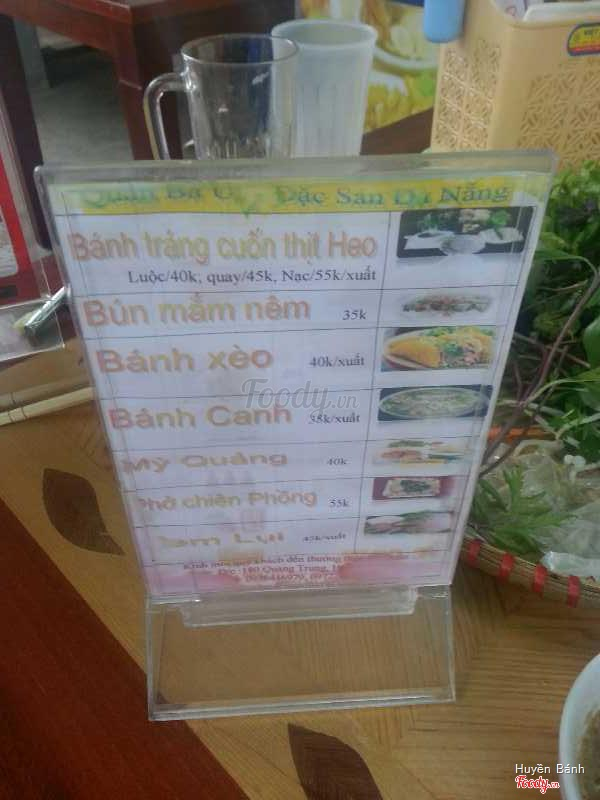 Quán Bà Ú Đặc Sản Đà Nẵng
Bánh tráng cuốn thịt Heo
Luộc/40k; quay/45k, Nạc/55k/xuất
Bún mắm nêm 35k
Bánh xèo 40k/xuất
Bánh Canh 35k/xuất
Mỳ Quảng 40k
Phở chiên Phồng 55k
Nem Lụi 45k/xuất
Kính mời quý khách đến thưởng
Đ/c :180 Quang Trung,
Foody.vn
Huyền Bánh
Foody.vn